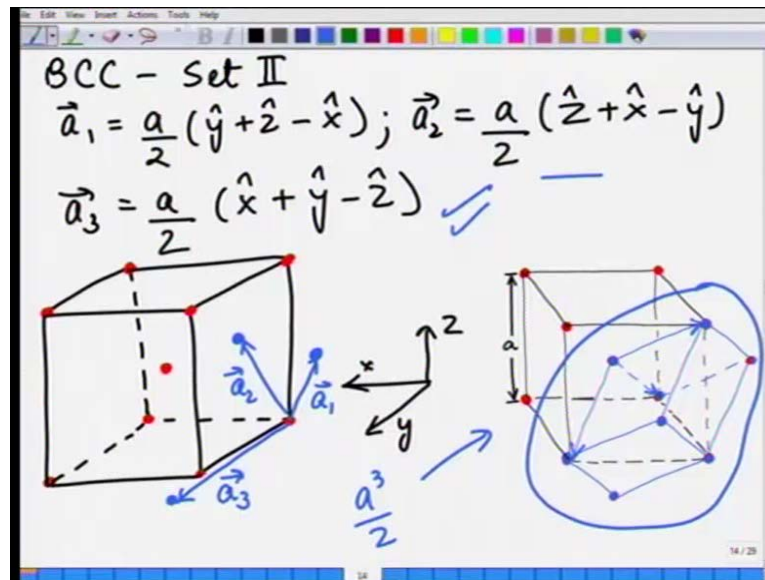 File Edit View Insert Actions Tools Help
BCC - Set II
\vec{a}_1 = \frac{a}{2} (\hat{y} + \hat{z} - \hat{x}) ; \vec{a}_2 = \frac{a}{2} (\hat{z} + \hat{x} - \hat{y})
\vec{a}_3 = \frac{a}{2} (\hat{x} + \hat{y} - \hat{z})
z
x
y
\vec{a}_2
\vec{a}_1
\vec{a}_3
a
\frac{a^3}{2}
14 / 29
14